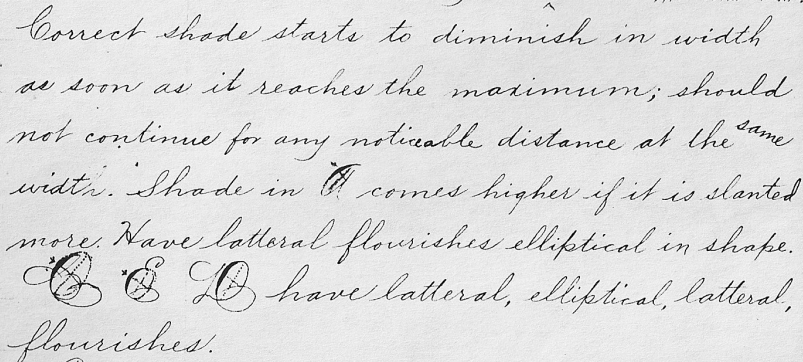 Correct shade starts to diminish in width
as soon as it reaches the maximum; should
not continue for any noticeable distance at the same
width. Shade in A comes higher if it is slanted
more. Have latteral flourishes elliptical in shape.
C E D have latteral, elliptical, latteral,
flourishes.